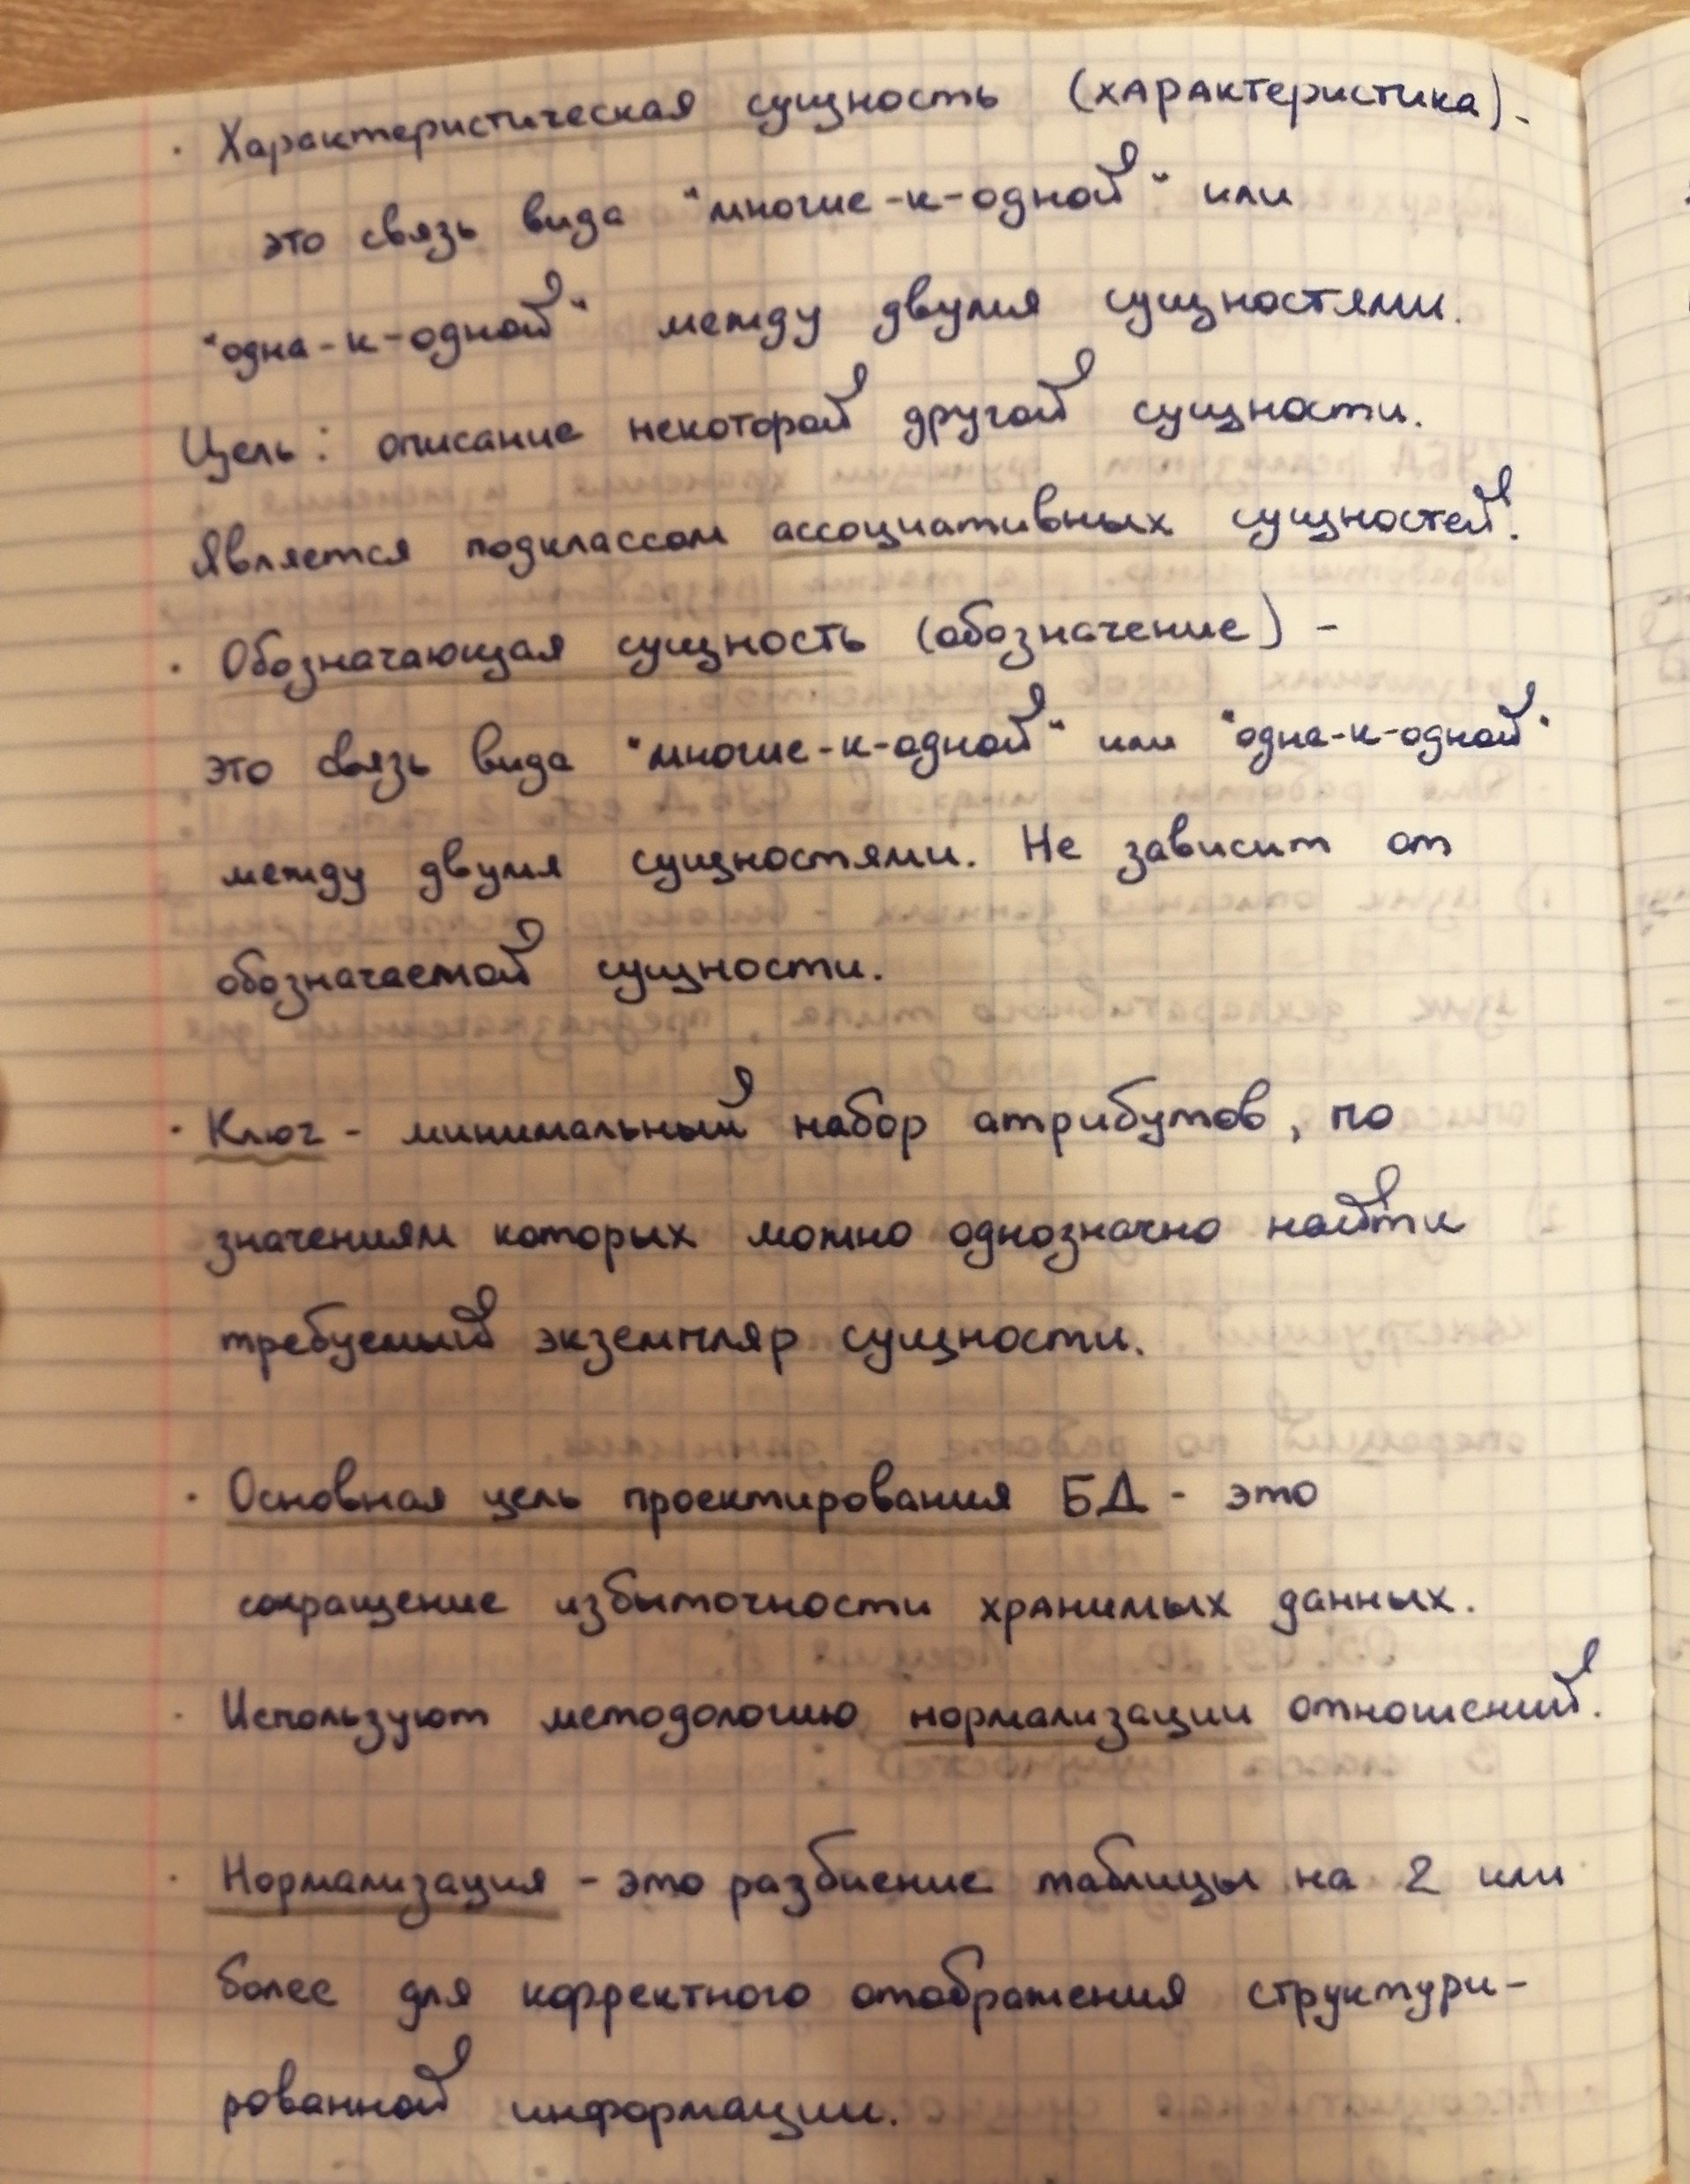 · Характеристическая сущность (характеристика) -
это связь вида "многие-к-одной" или
"одна-к-одной" между двумя сущностями.
Цель: описание некоторой другой сущности.
Является подклассом ассоциативных сущностей.
· Обозначающая сущность (обозначение) -
это связь вида "многие-к-одной" или "одна-к-одной"
между двумя сущностями. Не зависит от
обозначаемой сущности.
· Ключ - минимальный набор атрибутов, по
значениям которых можно однозначно найти
требуемый экземпляр сущности.
· Основная цель проектирования БД - это
сокращение избыточности хранимых данных.
· Используют методологию нормализации отношений.
· Нормализация - это разбиение таблицы на 2 или
более для корректного отображения структури-
рованной информации.